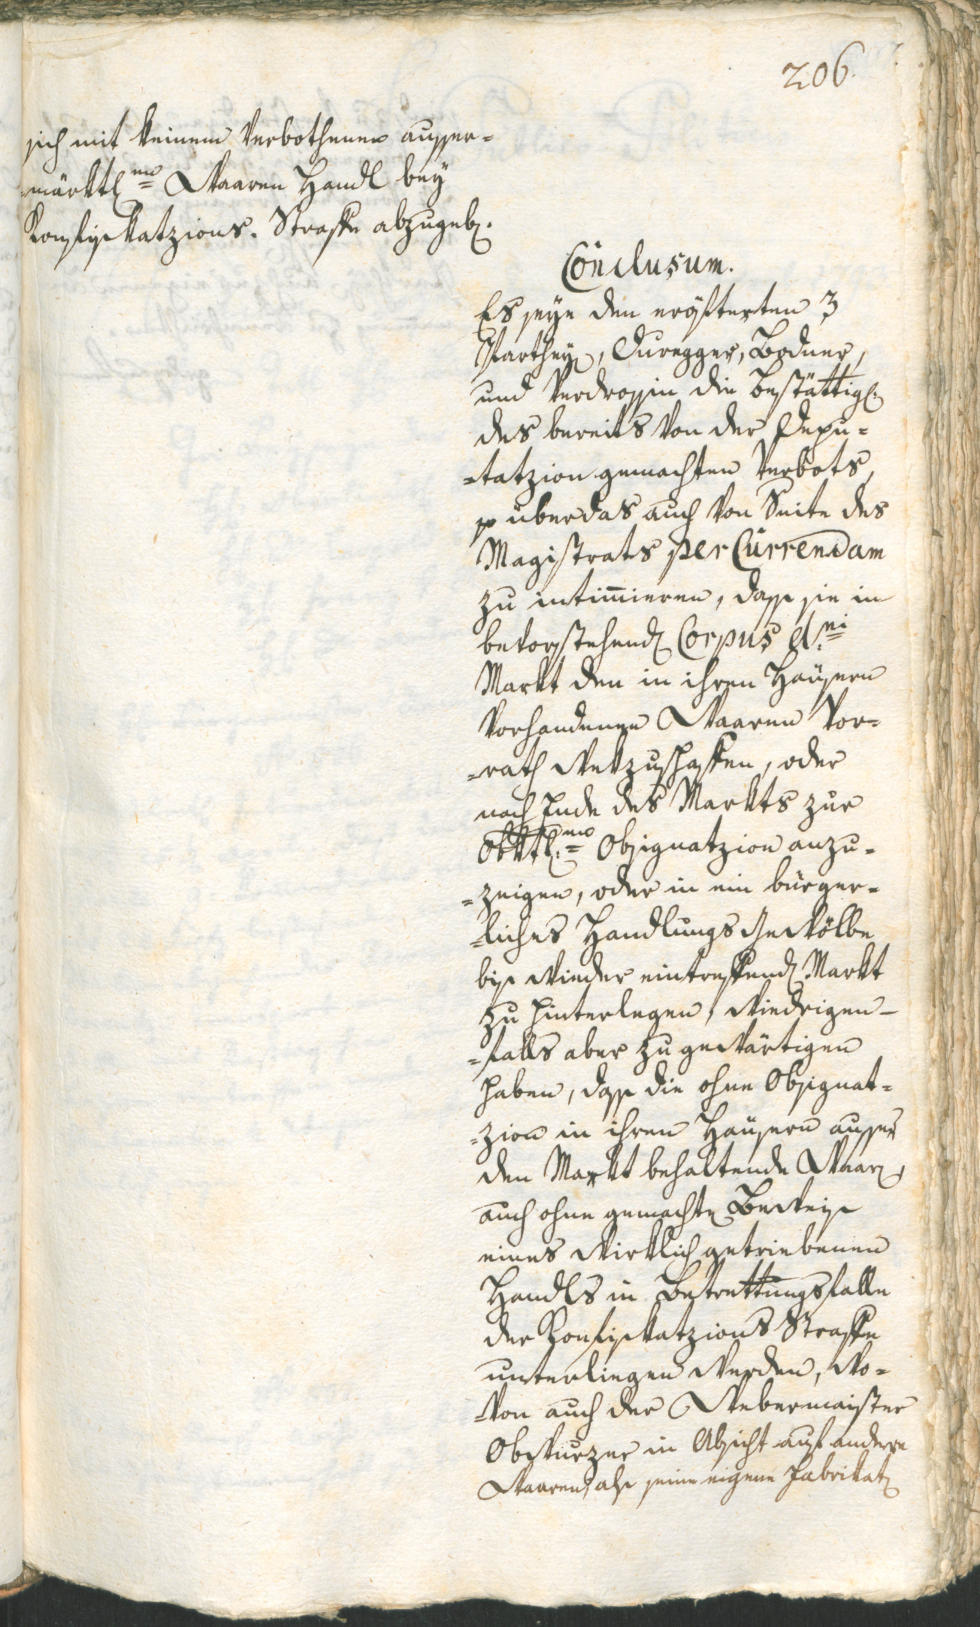 206.
sich mit keinem verbothenen ausser-
märktl:en Waaren Handl bey
Konfiskatzions-Straffe abzugeb:
Conclusum.
Es seye den erösterten 3
Partheyen, Duregger, Bodner,
und Verdrossin die Bestättig:
des bereits von der Depu-
-tatzion gemachten Verbots,
so überdas auch von Seite des
Magistrats per Currendam
zu intimieren, dass sie in
bevorstehend Corpus X:ni
Markt den in ihren Häusern
vorhandenen Waaren Vor-
-rath wekzuschaffen, oder
nach Ende des Markts zur
Obrktl:en Obsignatzion anzu-
-zeigen, oder in ein bürger-
-liches Handlungs Gewölbe
bis wieder eintreffend Markt
zu hinterlegen, wiedrigen-
-falls aber zu gewärtigen
haben, dass die ohne Obsignat-
-zion in ihren Häusern ausser
den Markt behaltende Waar,
auch ohne gemachte Beweise
eines wirklich getriebenen
Handls in Betrettungsfalle
der Konfiskatzions Straffe
unterliegen werden, wo-
-von auch der Webermaister
Obwurzer in Absicht auf andere
Waaren, als seine eigene Fabrikat